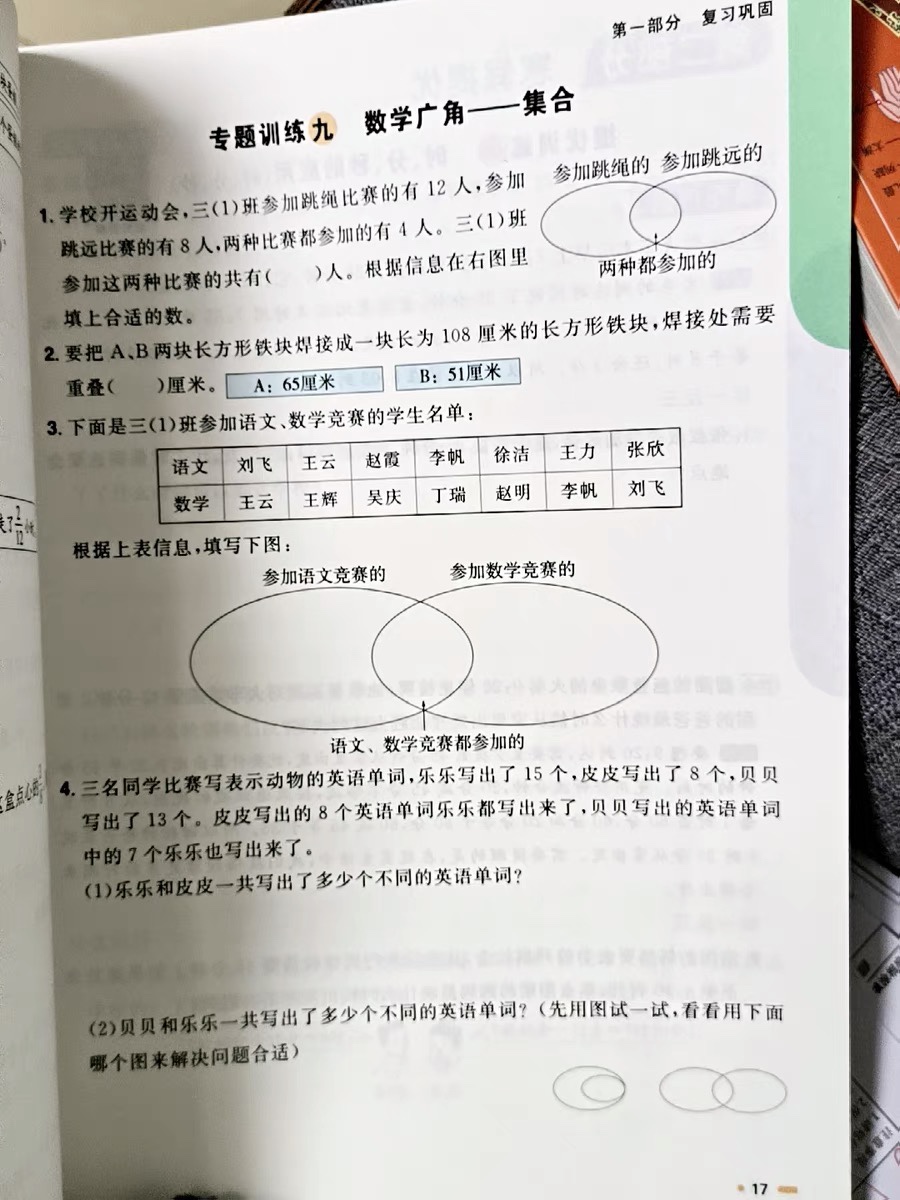 第一部分 复习巩固
专题训练九 数学广角——集合
1. 学校开运动会,三(1)班参加跳绳比赛的有 12 人,参加
跳远比赛的有 8 人,两种比赛都参加的有 4 人。三(1)班
参加这两种比赛的共有( )人。根据信息在右图里
填上合适的数。
参加跳绳的 参加跳远的
两种都参加的
2. 要把 A、B 两块长方形铁块焊接成一块长为 108 厘米的长方形铁块,焊接处需要
重叠( )厘米。 A: 65厘米 B: 51厘米
3. 下面是三(1)班参加语文、数学竞赛的学生名单:
语文 刘飞 王云 赵霞 李帆 徐洁 王力 张欣
数学 王云 王辉 吴庆 丁瑞 赵明 李帆 刘飞
根据上表信息,填写下图:
参加语文竞赛的 参加数学竞赛的
语文、数学竞赛都参加的
4. 三名同学比赛写表示动物的英语单词,乐乐写出了 15 个,皮皮写出了 8 个,贝贝
写出了 13 个。皮皮写出的 8 个英语单词乐乐都写出来了,贝贝写出的英语单词
中的 7 个乐乐也写出来了。
(1)乐乐和皮皮一共写出了多少个不同的英语单词?
(2)贝贝和乐乐一共写出了多少个不同的英语单词?(先用图试一试,看看用下面
哪个图来解决问题合适)
17